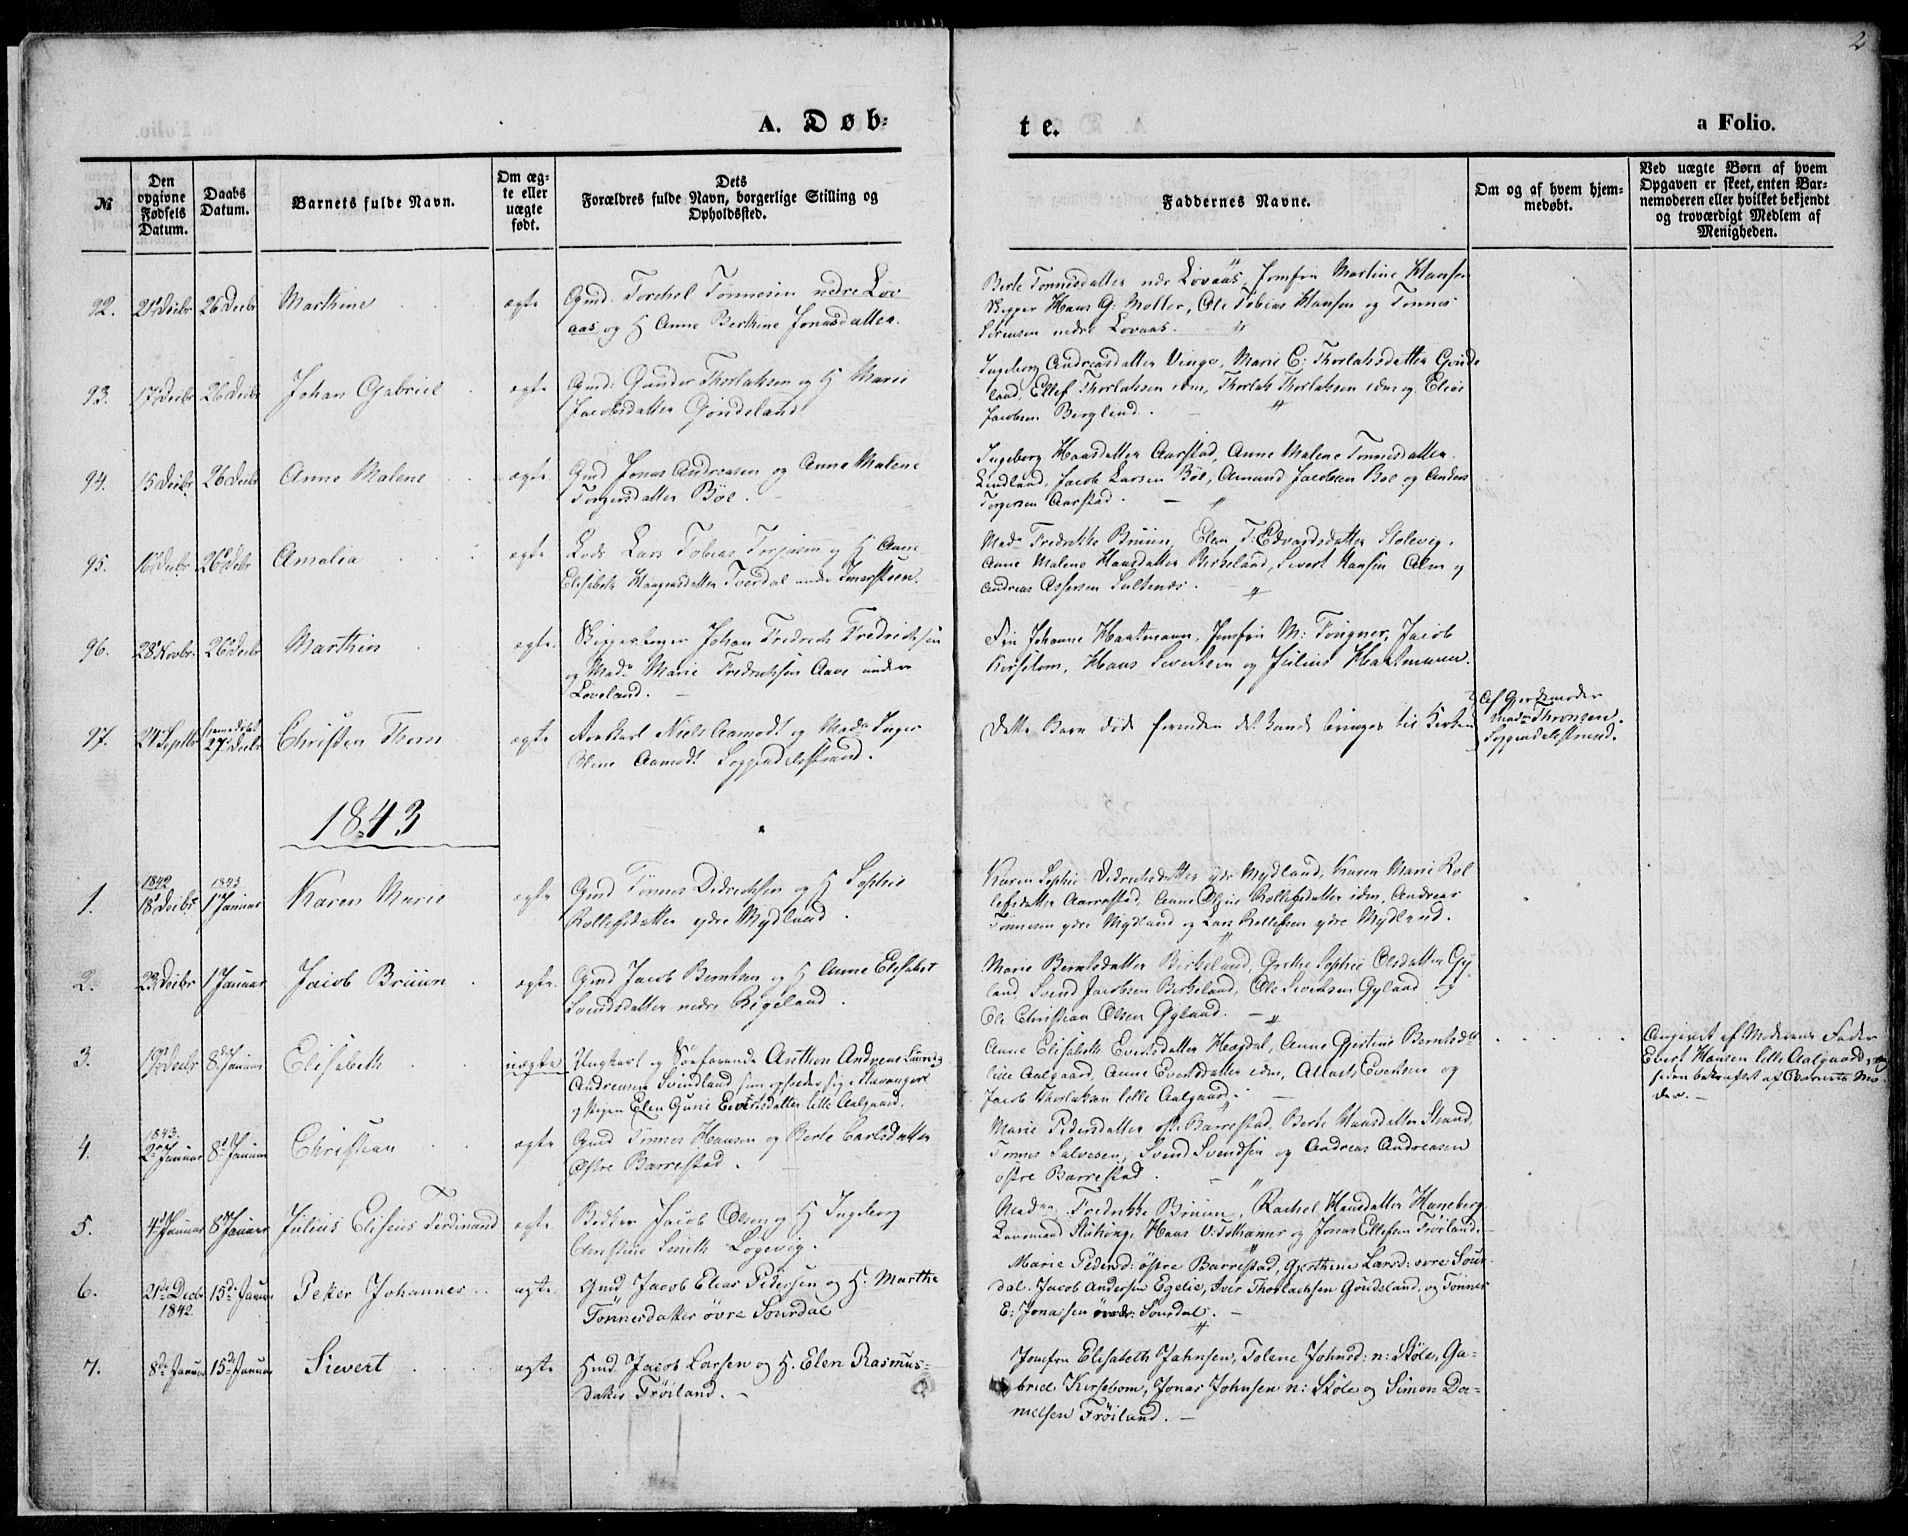 2
A. Døb-
te.
a Folio.
№
Den opgivne Fødsels Datum.
Daabs Datum.
Barnets fulde Navn.
Om ægte eller uægte født.
Dets Forældres fulde Navn, borgerlige Stilling og Opholdssted.
Faddernes Navne.
Om og af hvem hjemmedøbt.
Ved uægte Børn af hvem Opgaven er skeet, enten Barnemoderen eller hvilket bekjendt og troværdigt Medlem af Menigheden.
92. 26 Decbr Marthine ægte
Gmd. Torchel Tønnesen nedre Løv
aas og H Anne Berthine Jonasdatter.
Berte Tønnesdatter nedr Lovaas, Jomfru Martine Hansen
Skipper Hans G: Moller, Ole Tobias Hansen og Tønnes
Sørensen nedre Lovaas.
93. 17 Decbr 26 Decbr Johan Gabriel ægte
Gmd: Gunder Thorlaksen og H Marie
Jacobsdatter Gÿndeland
Ingeborg Andreasdatter Vinge, Marie C: Thorlaksdatter Gÿnde
land, Ellef Thorlaksen idm, Thorlak Thorlaksen idm og Elias
Jacobsen Berglind.
94. 15 Decbr 26 Decbr Anne Malene ægte
Gmd Jonas Andreasen og Anne Malene
Torgersdatter Böe.
Ingeborg Hansdatter Aarstad, Anne Malene Tønnesdatter
Lindland, Jacob Larsen Böe, Amund Jacobsen Boe og Anders
Torgersen Aarstad.
95. 16 Decbr 26 Decbr Amalia ægte
Lods Lars Tobias Torjusen og H Anne
Elisabeth Haagensdatter Tverdal under
Mad. Fredrikke Bruun, Elen T: Edvardsdatter Stolevig,
Anne Malene Hansdatter Birkeland, Sivert Hansen Alm og
Andreas Assersen
96. 28 Novbr. 26 Decbr Marthin ægte.
Johan Fredrich Fredrichsen
og Mad. Marie Fredrichsen Aave under
Løveland.
Johanne Haatmann, Jomfru M: Jacob
Kirsebom, Hans Sivertsen og Julius Haatmann.
97. 27 Decbr Christen Thom ægte
Niels Aamodt og Mad. Inger
Oline Aamodt Soggendalsstrand.
Dette Barn døde forinden det kunde bringes til Kirken
Af Gjordemoder
Mad. Thronsen,
Soggendalsstrand.
1843
1. 1842 18 Decbr 1843 1 Januar Karen Marie ægte
Gmd Tønnes Didrichsen og H Sophie
Rollefsdatter ydre Mydland.
Karen Sophie Didrichsdatter ydre Mydland, Karen Marie Rol
lefsdatter Aarrestad, Anne Rollefsdatter idm, Andreas
Tønnesen ydre Mydland og Lars Rollefsen ydre Mydland.
2. 23 Decbr 1 Januar Jacob Bruun ægte.
Gmd Jacob Berntsen og H Anne Elisabet
Svendsdatter nedre Regeland.
Marie Berntsdatter Birkeland, Grethe Sophie Olsdatter Gy
land, Svend Jacobsen Birkeland, Ole Gyland og
Ole Christian Olsen Gyland.
3. 19 Decbr 8 Januar Elisabeth uægte
Ungkarl og Søefarende Anthon Andreas
Andreasen Svindland som opholder sig i Stavanger
og Pigen Elen Guri Evertsdatter lille Aalgaard.
Anne Elisabeth Evertsdatter Hægdal, Anne Gjertine Berntsd.
lille Aalgaard, Anne Evertsdatter idm, Evertsen og
Jacob Thorlaksen lille Aalgaard.
Angivet af Moderens Fader
Evert Hansen lille Aalgaard, og
siden bekræftet af Barnets Mo-
der.
4. 1843. 2 Januar 8 Januar Christian ægte
Gmd Tønnes Hansen og Berte Carlsdatter
Østre Barrestad.
Marie Pedersdatter øst. Barrestad, Berte Hansdatter Strand,
Tønnes Salvesen, Svend Svendsen og Andreas Andreasen
østre Barrestad.
5. 4 Januar 8 Januar Julius Elisæus Ferdinand ægte
Bødker Jacob Olsen og H Ingeborg
Christine Smith Løgevig.
Mad. Fredrikke Bruun, Rachel Hansdatter Haneberg,
Hans V: Johanner og Jonas Ellefsen Frøiland.
6. 21de Decbr 1842. 15de Januar Peter Johannes ægte
Gmd Jacob Elias Pedersen og H. Marthe
Tönnesdatter övre Sourdal
Marie Pedersd: östre Barrestad, Gjerthine Larsd: øvre Sour-
dal. Jacob Andersen Egelie, Iver Thorlachsen Gÿndeland, og Tönnes
E: Jonassen övre Sourdal.
7. 8de Januar 15de Januar Sievert ægte
Hmd Jacob Larsen og H. Elen Rasmus-
datter Fröiland.
Jomfru Elisabeth Jahnsen, Tolene Johnsd: n: Støle, Ga-
briel Kirsebom, Jonas Johnsen n: Støle og Simon Da-
nielsen Fröiland.